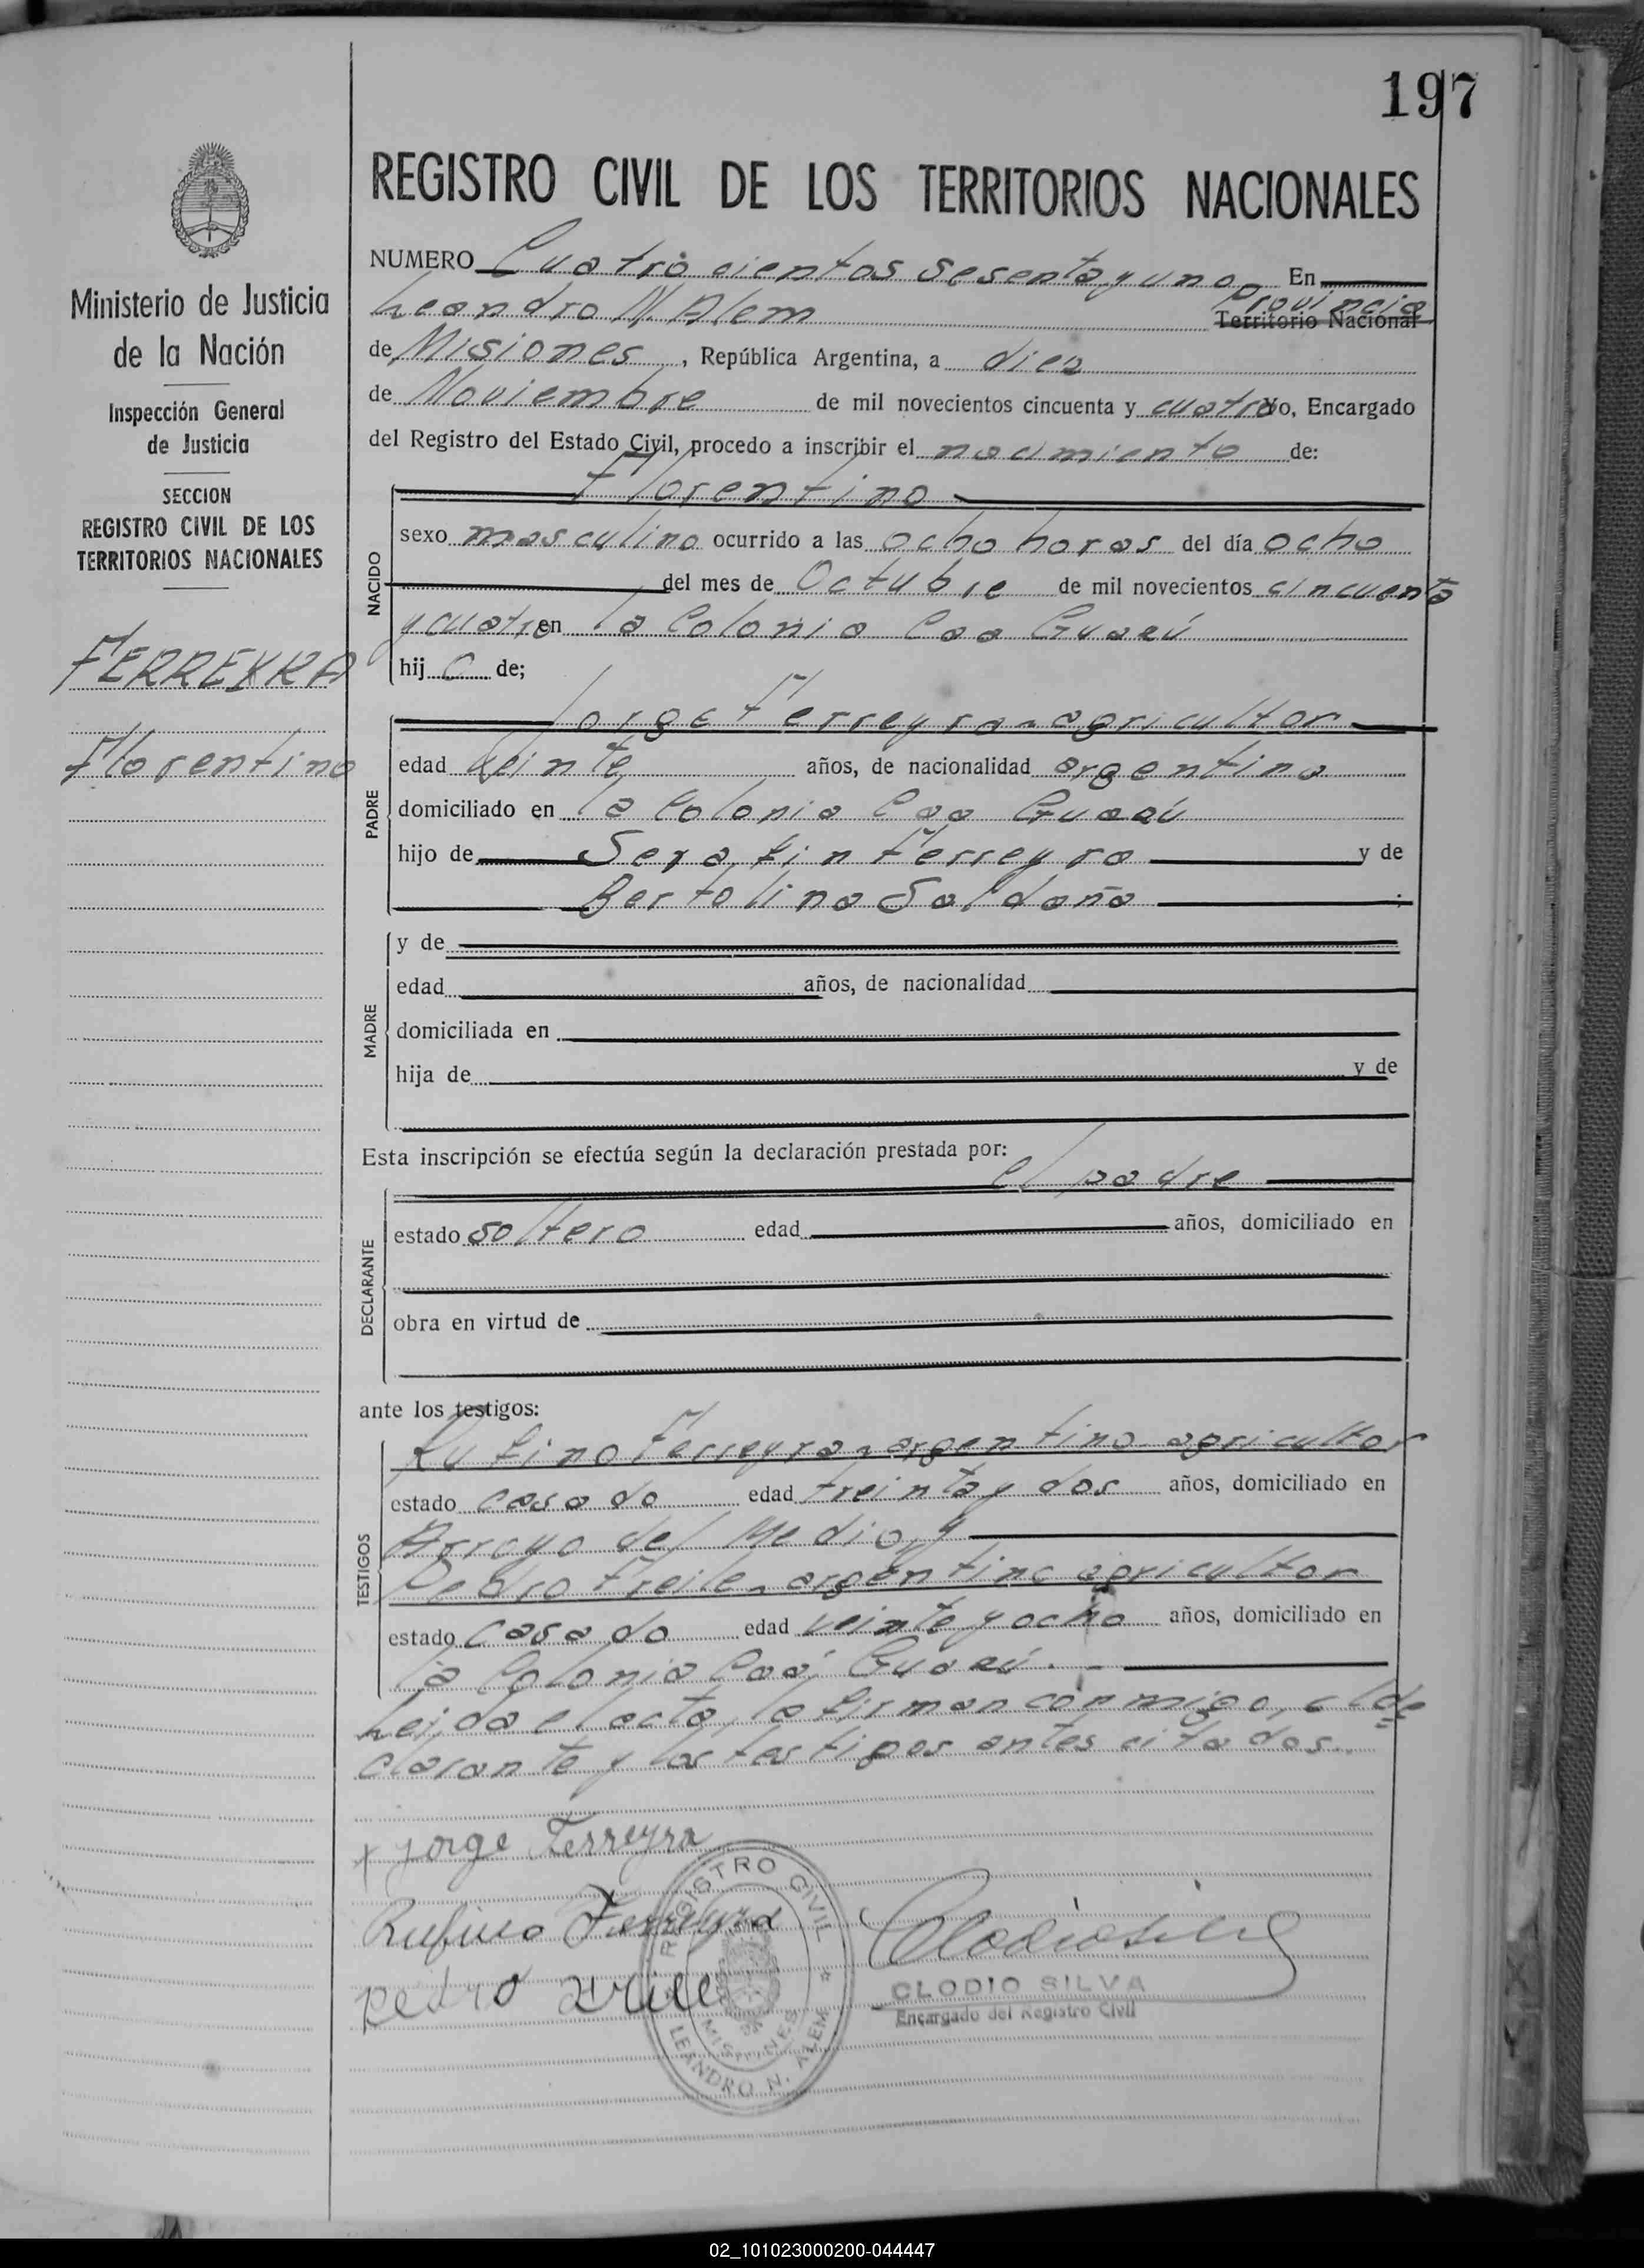 197
Ministerio de Justicia
de la Nación
Inspección General
de Justicia
SECCION
REGISTRO CIVIL DE LOS
TERRITORIOS NACIONALES
FERREYRA
Florentino
REGISTRO CIVIL DE LOS TERRITORIOS NACIONALES
NUMERO Cuatro cientos sesenta y uno En
Leandro N. Alem Provincia Territorio Nacional
de Misiones, República Argentina, a diez
de Noviembre de mil novecientos cincuenta y cuatro Yo, Encargado
del Registro del Estado Civil, procedo a inscribir el nacimiento de:
Florentino
NACIDO
sexo masculino ocurrido a las ocho horas del día ocho
del mes de Octubre de mil novecientos cincuenta
y cuatro en la Colonia Caa Guazú
hijo de;
PADRE
Jorge Ferreyra - agricultor
edad veinte años, de nacionalidad argentina
domiciliado en la Colonia Caa Guazú
hijo de Serafin Ferreyra y de
Bertolina Saldaña
MADRE
y de
edad años, de nacionalidad
domiciliada en
hija de y de
Esta inscripción se efectúa según la declaración prestada por:
el padre
DECLARANTE
estado soltero edad años, domiciliado en
obra en virtud de
ante los testigos:
TESTIGOS
Rufino Ferreyra - argentino agricultor
estado casado edad treinta y dos años, domiciliado en
Arroyo del Medio, y
Pedro Freile - argentino agricultor
estado casado edad veinte y ocho años, domiciliado en
la Colonia Caá Guazú.
Leida el acta, la firman conmigo, el de=
clarante y los testigos antes citados.
x Jorge Ferreyra
Rufino Ferreyra
Pedro
REGISTRO CIVIL
MISIONES
LEANDRO N. ALEM
Clodio Silva
CLODIO SILVA
Encargado del Registro Civil
02_101023000200-044447